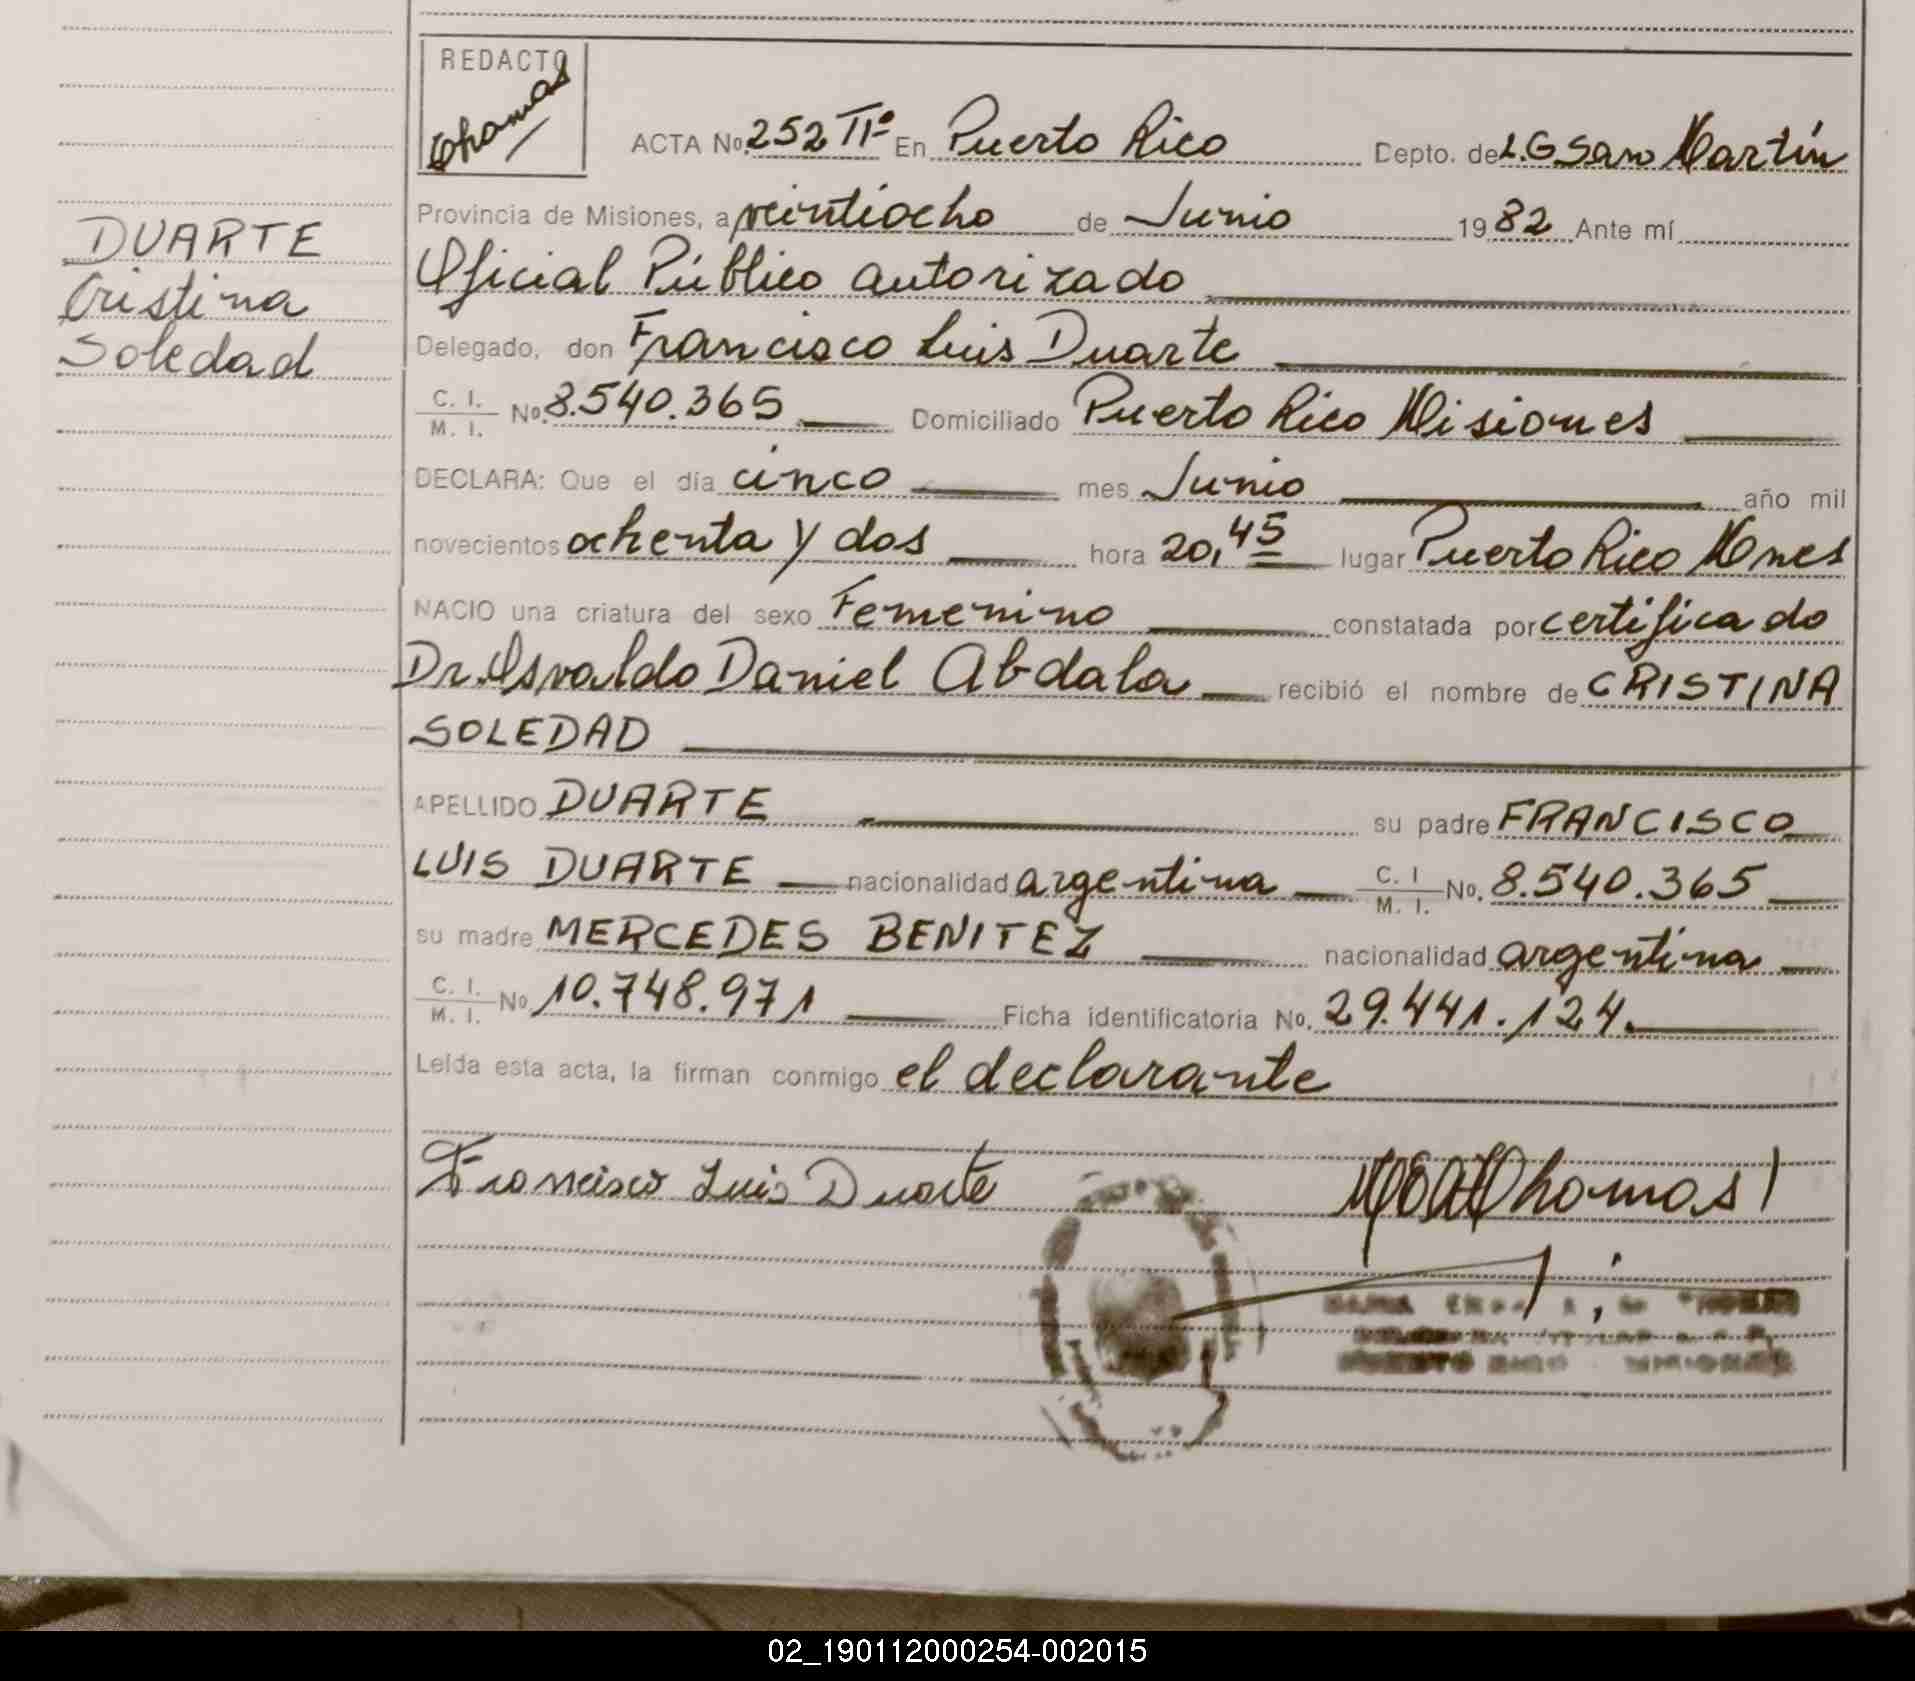 REDACTO
Thomas
ACTA No. 252 TIº En Puerto Rico Depto. de L.G San Martín
Provincia de Misiones, a veintiocho de Junio 1982 Ante mí
Oficial Público autorizado
Delegado, don Francisco Luis Duarte
C. I. / M. I. No. 8.540.365 Domiciliado Puerto Rico Misiones
DECLARA: Que el día cinco mes Junio año mil
novecientos ochenta y dos hora 20,45 lugar Puerto Rico Mnes
NACIO una criatura del sexo Femenino constatada por certificado
Dr. Osvaldo Daniel Abdala recibió el nombre de CRISTINA
SOLEDAD
APELLIDO DUARTE su padre FRANCISCO
LUIS DUARTE nacionalidad argentina C. I / M. I. No. 8.540.365
su madre MERCEDES BENITEZ nacionalidad argentina
C. I. / M. I. No 10.748.971 Ficha identificatoria No. 29.441.124.
Leída esta acta, la firman conmigo el declarante
Francisco Luis Duarte
Thomas
PUERTO RICO MISIONES
DUARTE
Cristina
Soledad
02_190112000254-002015